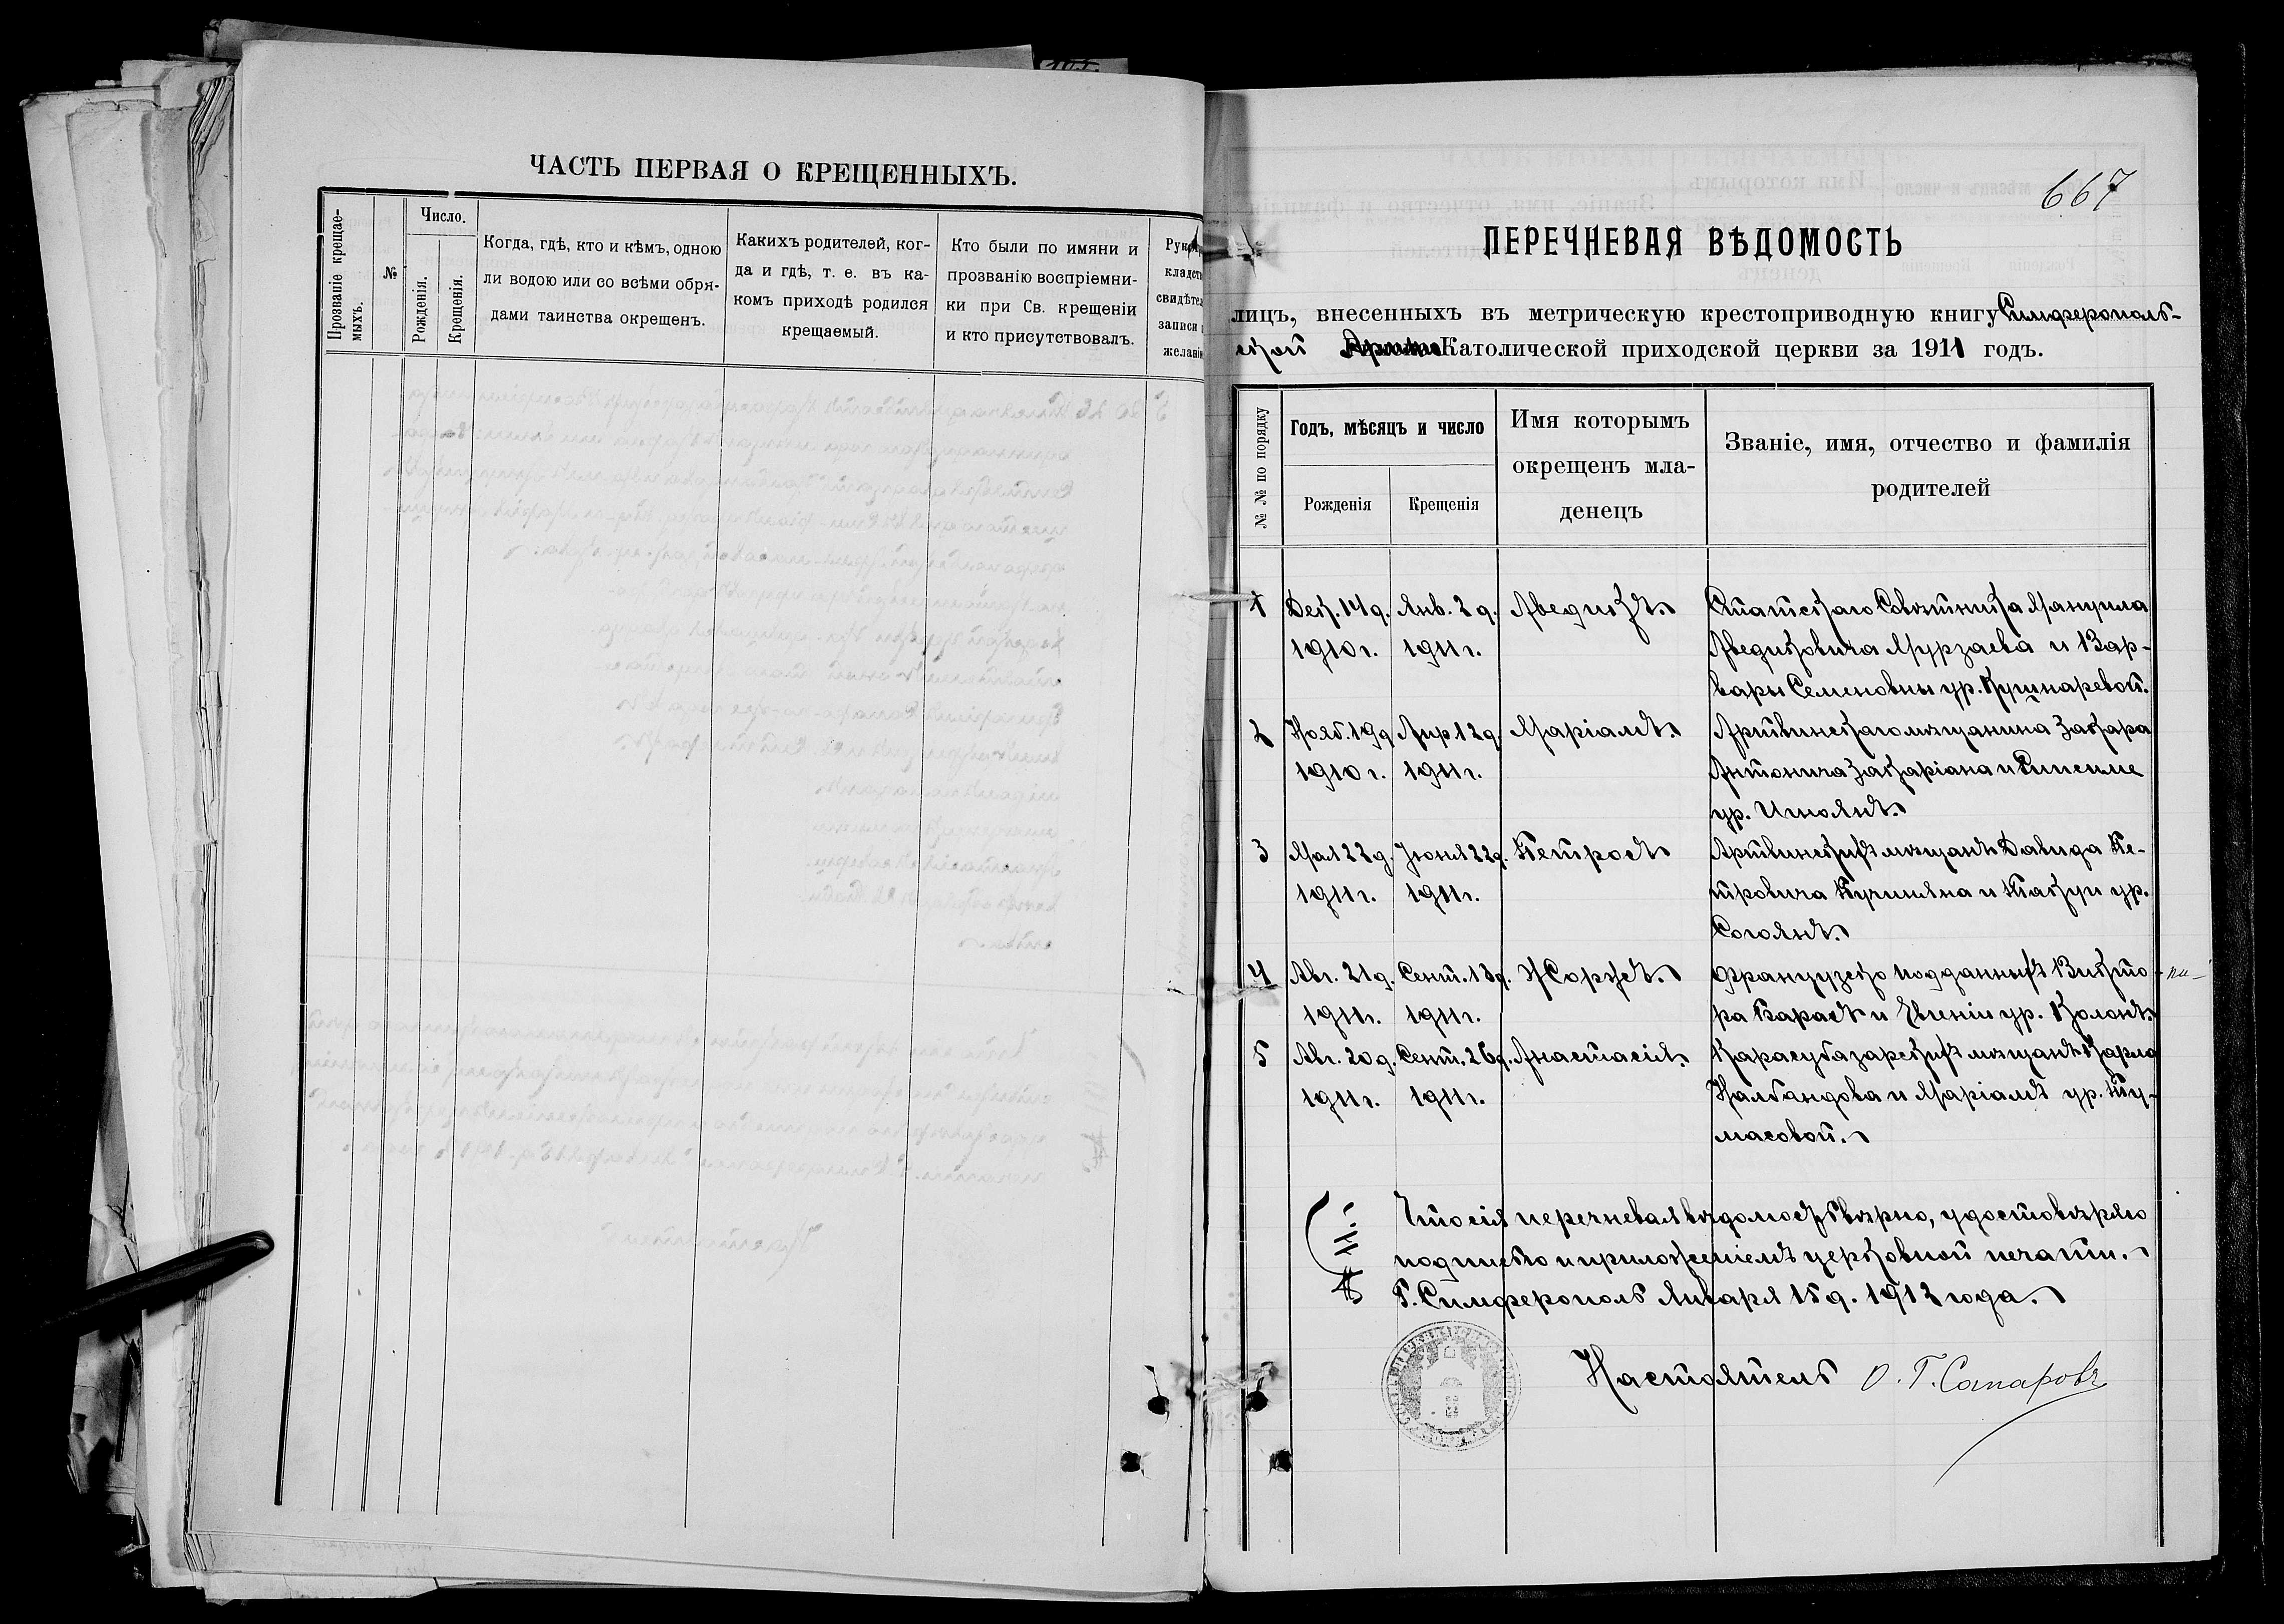 ЧАСТЬ ПЕРВАЯ О КРЕЩЕННЫХЪ.
Прозваніе крещае-
мыхъ.
№
Число.
Рожденія.
Крещенія.
Когда, гдѣ, кто и кѣмъ, одною
ли водою или со всѣми обря-
дами таинства окрещенъ.
Какихъ родителей, ког-
да и гдѣ, т. е. въ ка-
комъ приходѣ родился
крещаемый.
Кто были по имяни и
прозванію воспріемни-
ки при Св. крещеніи
и кто присутствовалъ.
кладст
свидѣтел
записи
желані
667
ПЕРЕЧНЕВАЯ ВѢДОМОСТЬ
лицъ, внесенныхъ въ метрическую крестоприводную книгу Симферополь-
ской Армяно Католической приходской церкви за 1911 годъ.
№ № по порядку
Годъ, мѣсяцъ и число
Рожденія
Крещенія
Имя которымъ
окрещенъ мла-
денецъ
Званіе, имя, отчество и фамилія
родителей
1 Дек. 14 д. Янв. 2 д. Аведикъ. Статскаго Совѣтника Мануила
1910 г. 1911 г. Аведиковича Мурзаева и Вар-
вары Семеновны ур. Кушнаревой.
2 Нояб. 19 д. Апр. 12 д. Маріамъ. Артвинскаго мѣщанина Закара
1910 г. 1911 г. Антонича Закаріана и Рипсиме
ур.
3 Мая 22 д. Іюня 22 д. Петросъ Артвинскихъ мѣщанъ Давида Пе-
1911 г. 1911 г. тровича и Такуи ур.
Согоянъ.
4 Авг. 21 д. Сент. 13 д. Жоржъ. Французско подданныхъ Викто-
1911 г. 1911 г. ра Карасъ и Евгеніи ур. Колонъ.
5 Авг. 20 д. Сент. 26 д. Анастасія. Карасубазарскихъ мѣщанъ Карла
1911 г. 1911 г. Налбандова и Маріамъ ур. Ту-
масовой.
Что сія перечневая вѣдомость вѣрно, удостовѣряю
подписью и приложеніемъ церковной печати.
Г. Симферополь Января 15 д. 1912 года.
Настоятель О. Г. Сапаровъ